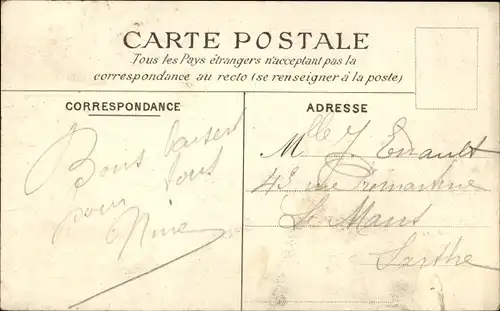 CARTE POSTALE
Tous les Pays étrangers n'acceptant pas la
correspondance au recto (se renseigner à la poste)
CORRESPONDANCE
Bons baisers
pour tous
Nine
ADRESSE
Mlle J. Enault
43 rue
Le Mans
Sarthe